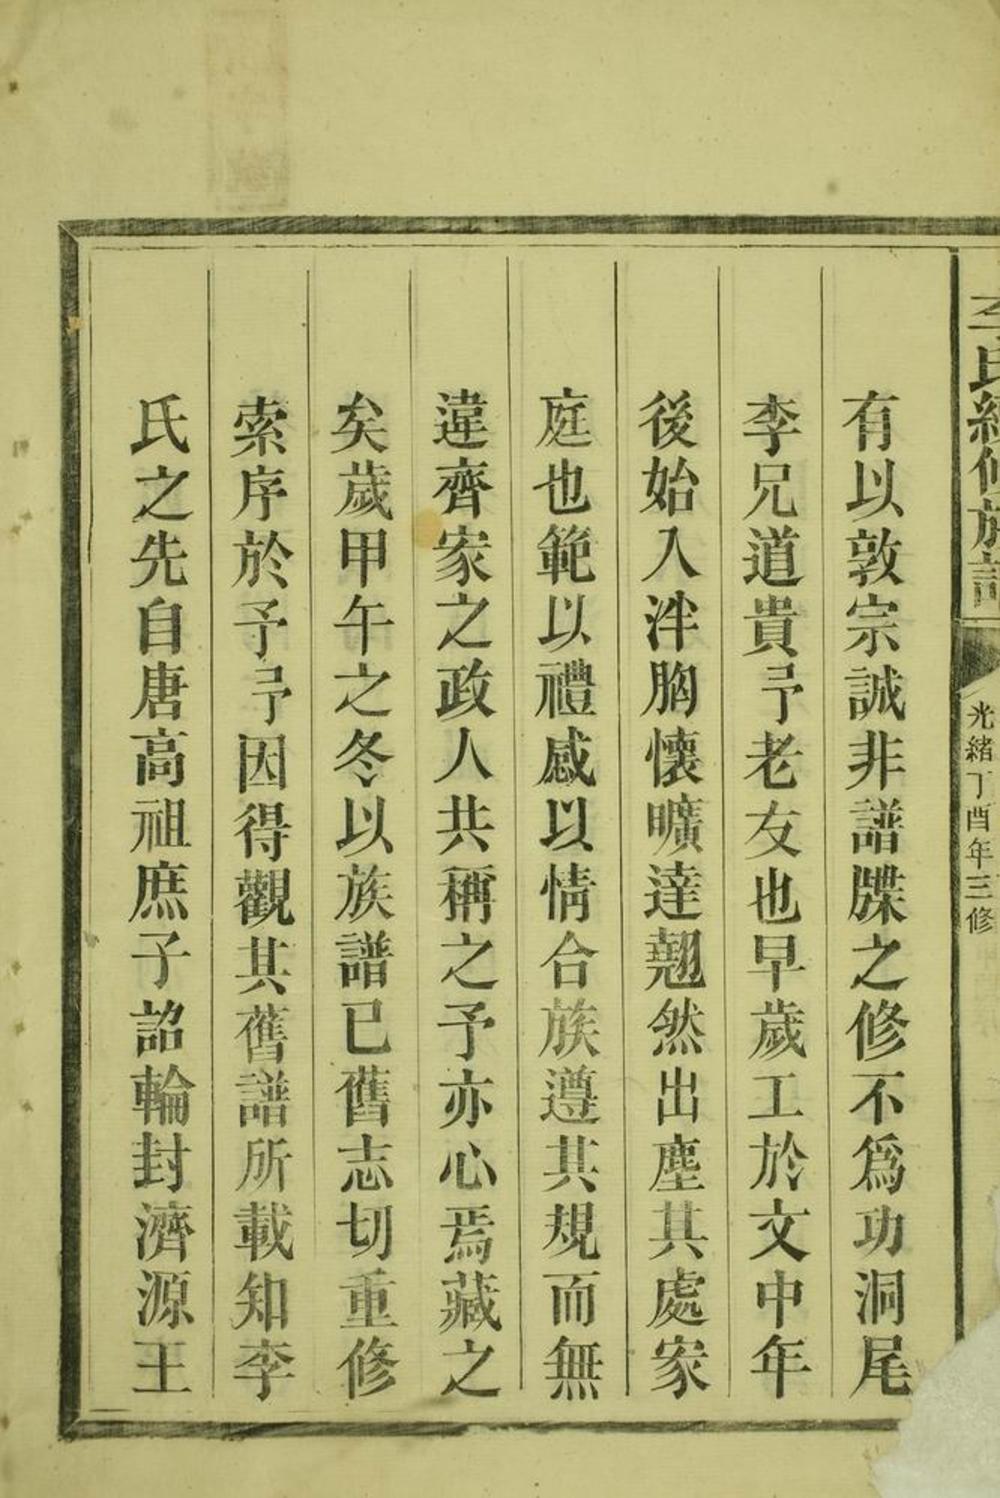 李氏續修族譜
光緒丁酉年三修
有以敦宗誠非譜牒之修不爲功洞尾
李兄道貴予老友也早歲工於文中年
後始入泮胸懷曠達翹然出塵其處家
庭也範以禮感以情合族遵其規而無
違齊家之政人共稱之予亦心焉藏之
矣歲甲午之冬以族譜已舊志切重修
索序於予予因得觀其舊譜所載知李
氏之先自唐高祖庶子詔輪封濟源王